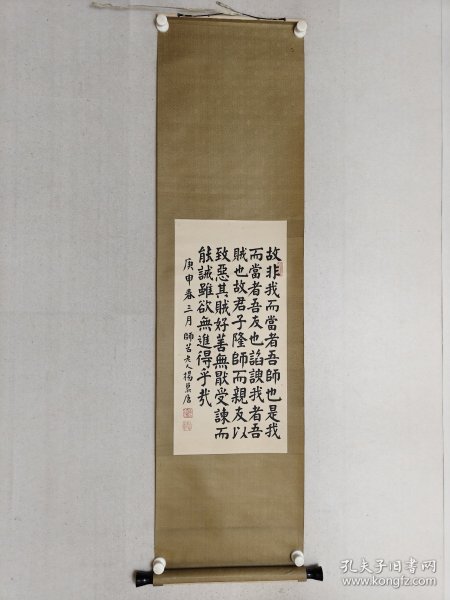 故非我而當者吾師也是我
而當者吾友也諂諛我者吾
賊也故君子隆師而親友以
致惡其賊好善無厭受諫而
能誡雖欲無進得乎哉
庚申春三月 師苦老人楊慕唐
孔夫子旧书网
www.kongfz.com